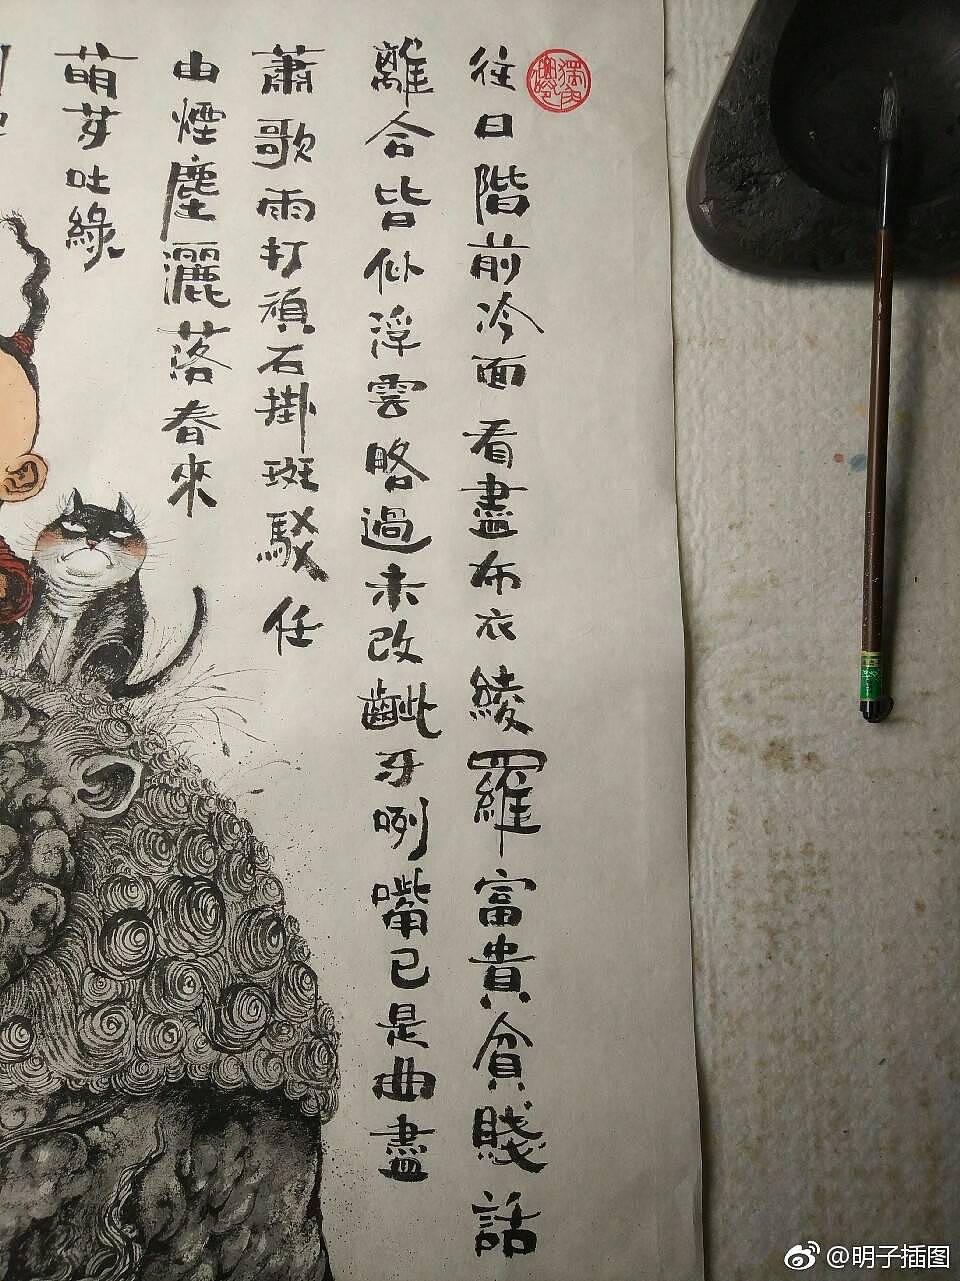 往日階前冷面看盡布衣綾羅富貴貧賤話
離合皆似浮雲略過未改齜牙咧嘴已是曲盡
蕭歌雨打頑石掛斑駁任
由煙塵灑落春來
萌芽吐綠
@明子插图